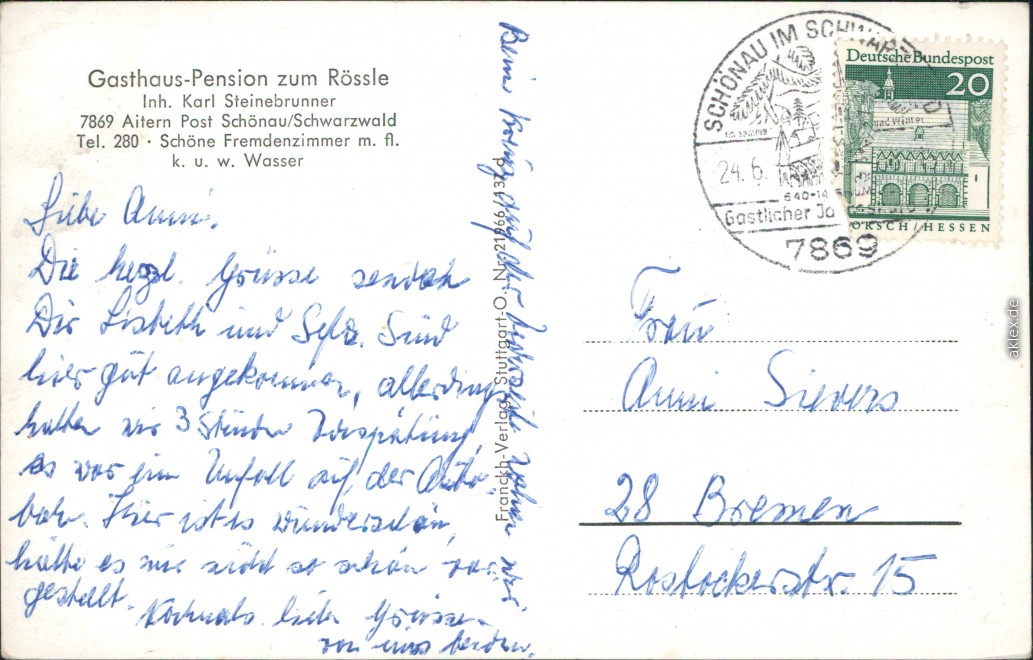 Gasthaus-Pension zum Rössle
Inh. Karl Steinebrunner
7869 Aitern Post Schönau/Schwarzwald
Tel. 280 · Schöne Fremdenzimmer m. fl.
k. u. w. Wasser
Liebe Anni,
Die herzl. Grüsse senden
Dir Lisbeth und Sefz. Sind
hier gut angekommen, allerdings
hatten wir 3 Stunden Verspätung,
es war ein Unfall auf der Auto-
bahn. Hier ist es wunderschön,
hätte es mir nicht so schön vor-
gestellt.
Nochmals liebe Grüsse
von uns beiden.
Beim Kreuz auf der Rückseite wohnen wir
Franckh-Verlag, Stuttgart-O. Nr. 21966
SCHÖNAU IM SCHWARZ
24.6.
Gastlicher
und Winter
7869
Deutsche Bundespost
20
LORSCH/HESSEN
Frau
Anni Sievers
28 Bremen
Rostockerstr. 15
aklex.de